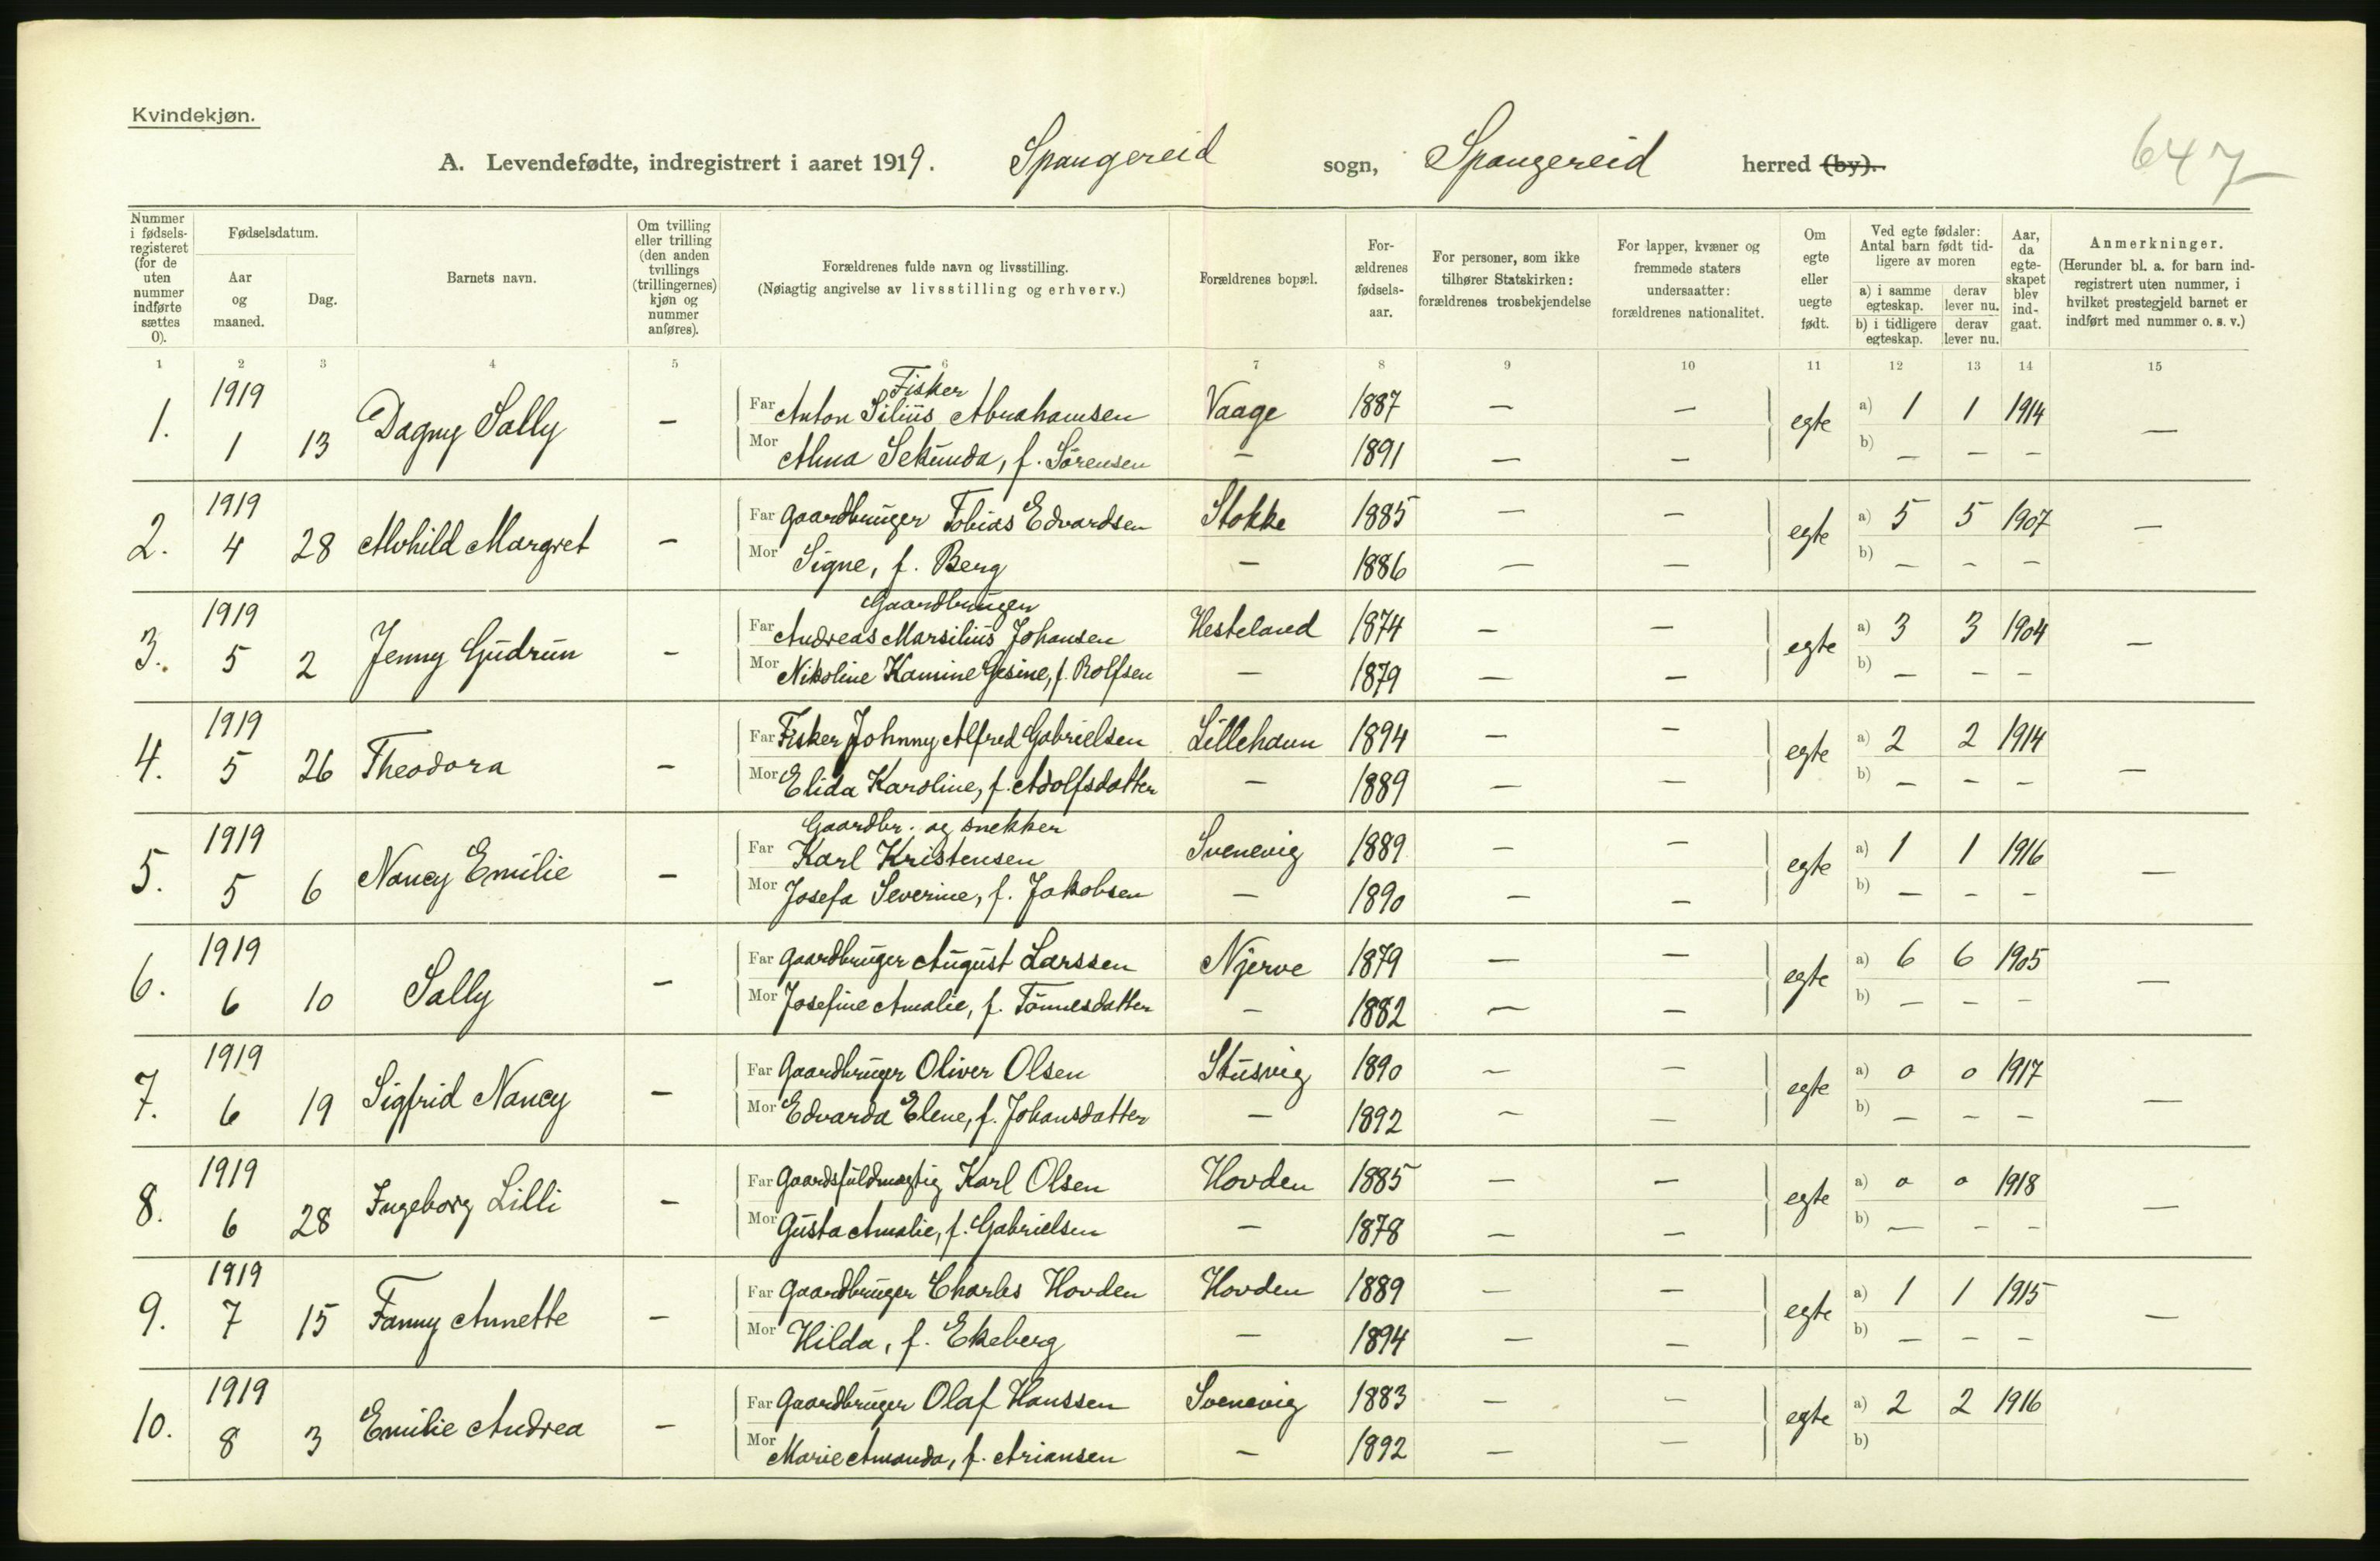 Kvindekjøn.
A. Levendefødte, indregistrert i aaret 1919. Spangereid sogn, Spangereid herred (by).
647
Nummer i fødsels-registeret (for de uten nummer indførte sættes 0).
Fødselsdatum.
Aar og maaned.
Dag.
Barnets navn.
Om tvilling eller trilling (den anden tvillings (trillingernes) kjøn og nummer anføres).
Forældrenes fulde navn og livsstilling.
(Nøiagtig angivelse av livsstilling og erhverv.)
Forældrenes bopæl.
For-ældrenes fødsels-aar.
For personer, som ikke tilhører Statskirken: forældrenes trosbekjendelse
For lapper, kvæner og fremmede staters undersaatter: forældrenes nationalitet.
Om egte eller uegte født.
Ved egte fødsler: Antal barn født tid-ligere av moren
a) i samme egteskap.
derav lever nu.
b) i tidligere egteskap.
derav lever nu.
Aar, da egte-skapet blev ind-gaat.
Anmerkninger.
(Herunder bl. a. for barn ind-registrert uten nummer, i hvilket prestegjeld barnet er indført med nummer o. s. v.)
1 2 3 4 5 6 7 8 9 10 11 12 13 14 15
1. 1919 1 13 Dagny Sally —
Fisker
Far Anton Silius Abrahamsen Vaage 1887 — — egte a) 1 1 1914 —
Mor Alma Sekunda, f. Sørensen — 1891 — — b) — — —
2. 1919 4 28 Alvhild Margret —
Far Gaardbruger Tobias Edvardsen Stokke 1885 — — egte a) 5 5 1907 —
Mor Signe, f. Berg — 1886 — — b) — — —
3. 1919 5 2 Jenny Gudrun —
Gaardbruger
Far Andreas Marsilius Johansen Hesteland 1874 — — egte a) 3 3 1904 —
Mor Nikoline Kamine Gesine, f. Rolfsen — 1879 — — b) — — —
4. 1919 5 26 Theodora —
Far Fisker Johnny Alfred Gabrielsen Lillehavn 1894 — — egte a) 2 2 1914 —
Mor Elida Karoline, f. Adolfsdatter — 1889 — — b) — — —
5. 1919 5 6 Nancy Emilie —
Gaardbr. og snekker
Far Karl Kristensen Svenevig 1889 — — egte a) 1 1 1916 —
Mor Josefa Severine, f. Jakobsen — 1890 — — b) — — —
6. 1919 6 10 Sally —
Far Gaardbruger August Larssen Njerve 1879 — — egte a) 6 6 1905 —
Mor Josefine Amalie, f. Tønnesdatter — 1882 — — b) — — —
7. 1919 6 19 Sigfrid Nancy —
Far Gaardbruger Oliver Olsen Stusvig 1890 — — egte a) 0 0 1917 —
Mor Edvarda Elene, f. Johansdatter — 1892 — — b) — — —
8. 1919 6 28 Ingeborg Lilli —
Far Gaardsfuldmægtig Karl Olsen Hovden 1885 — — egte a) 0 0 1918 —
Mor Gusta Amalie, f. Gabrielsen — 1878 — — b) — — —
9. 1919 7 15 Fanny Annette —
Far Gaardbruger Charles Hovden Hovden 1889 — — egte a) 1 1 1915 —
Mor Hilda, f. Ekeberg — 1894 — — b) — — —
10. 1919 8 3 Emilie Andrea —
Far Gaardbruger Olaf Hanssen Svenevig 1883 — — egte a) 2 2 1916
Mor Marie Amanda, f. Ariansen — 1892 — — b)